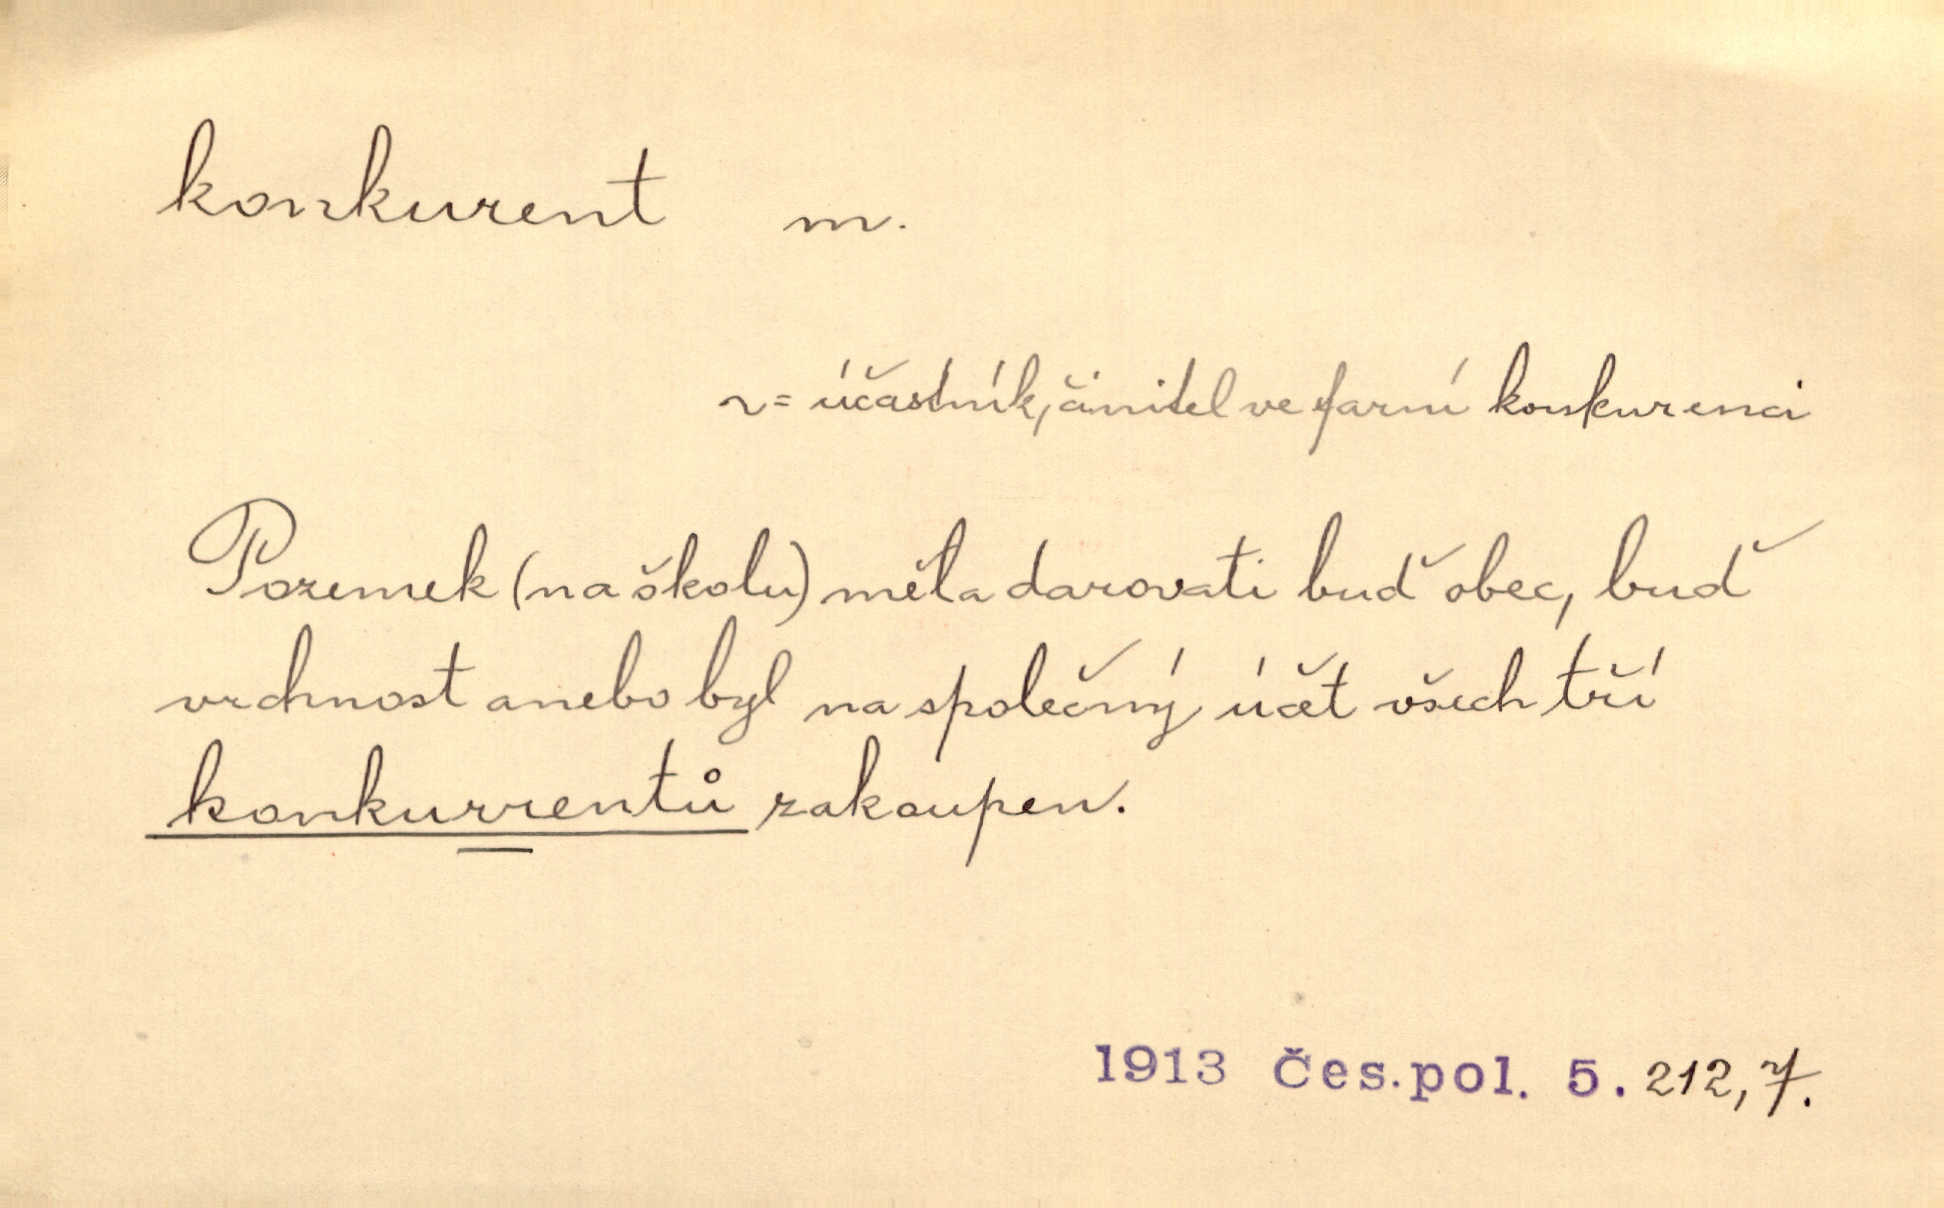 konkurent m.
~= účastník, činitel ve farní konkurenci
Pozemek (na školu) měla darovati buď obec, buď
vrchnost anebo byl na společný účet všech tří
konkurrentů zakoupen.
1913 Čes.pol. 5. 212, 7.